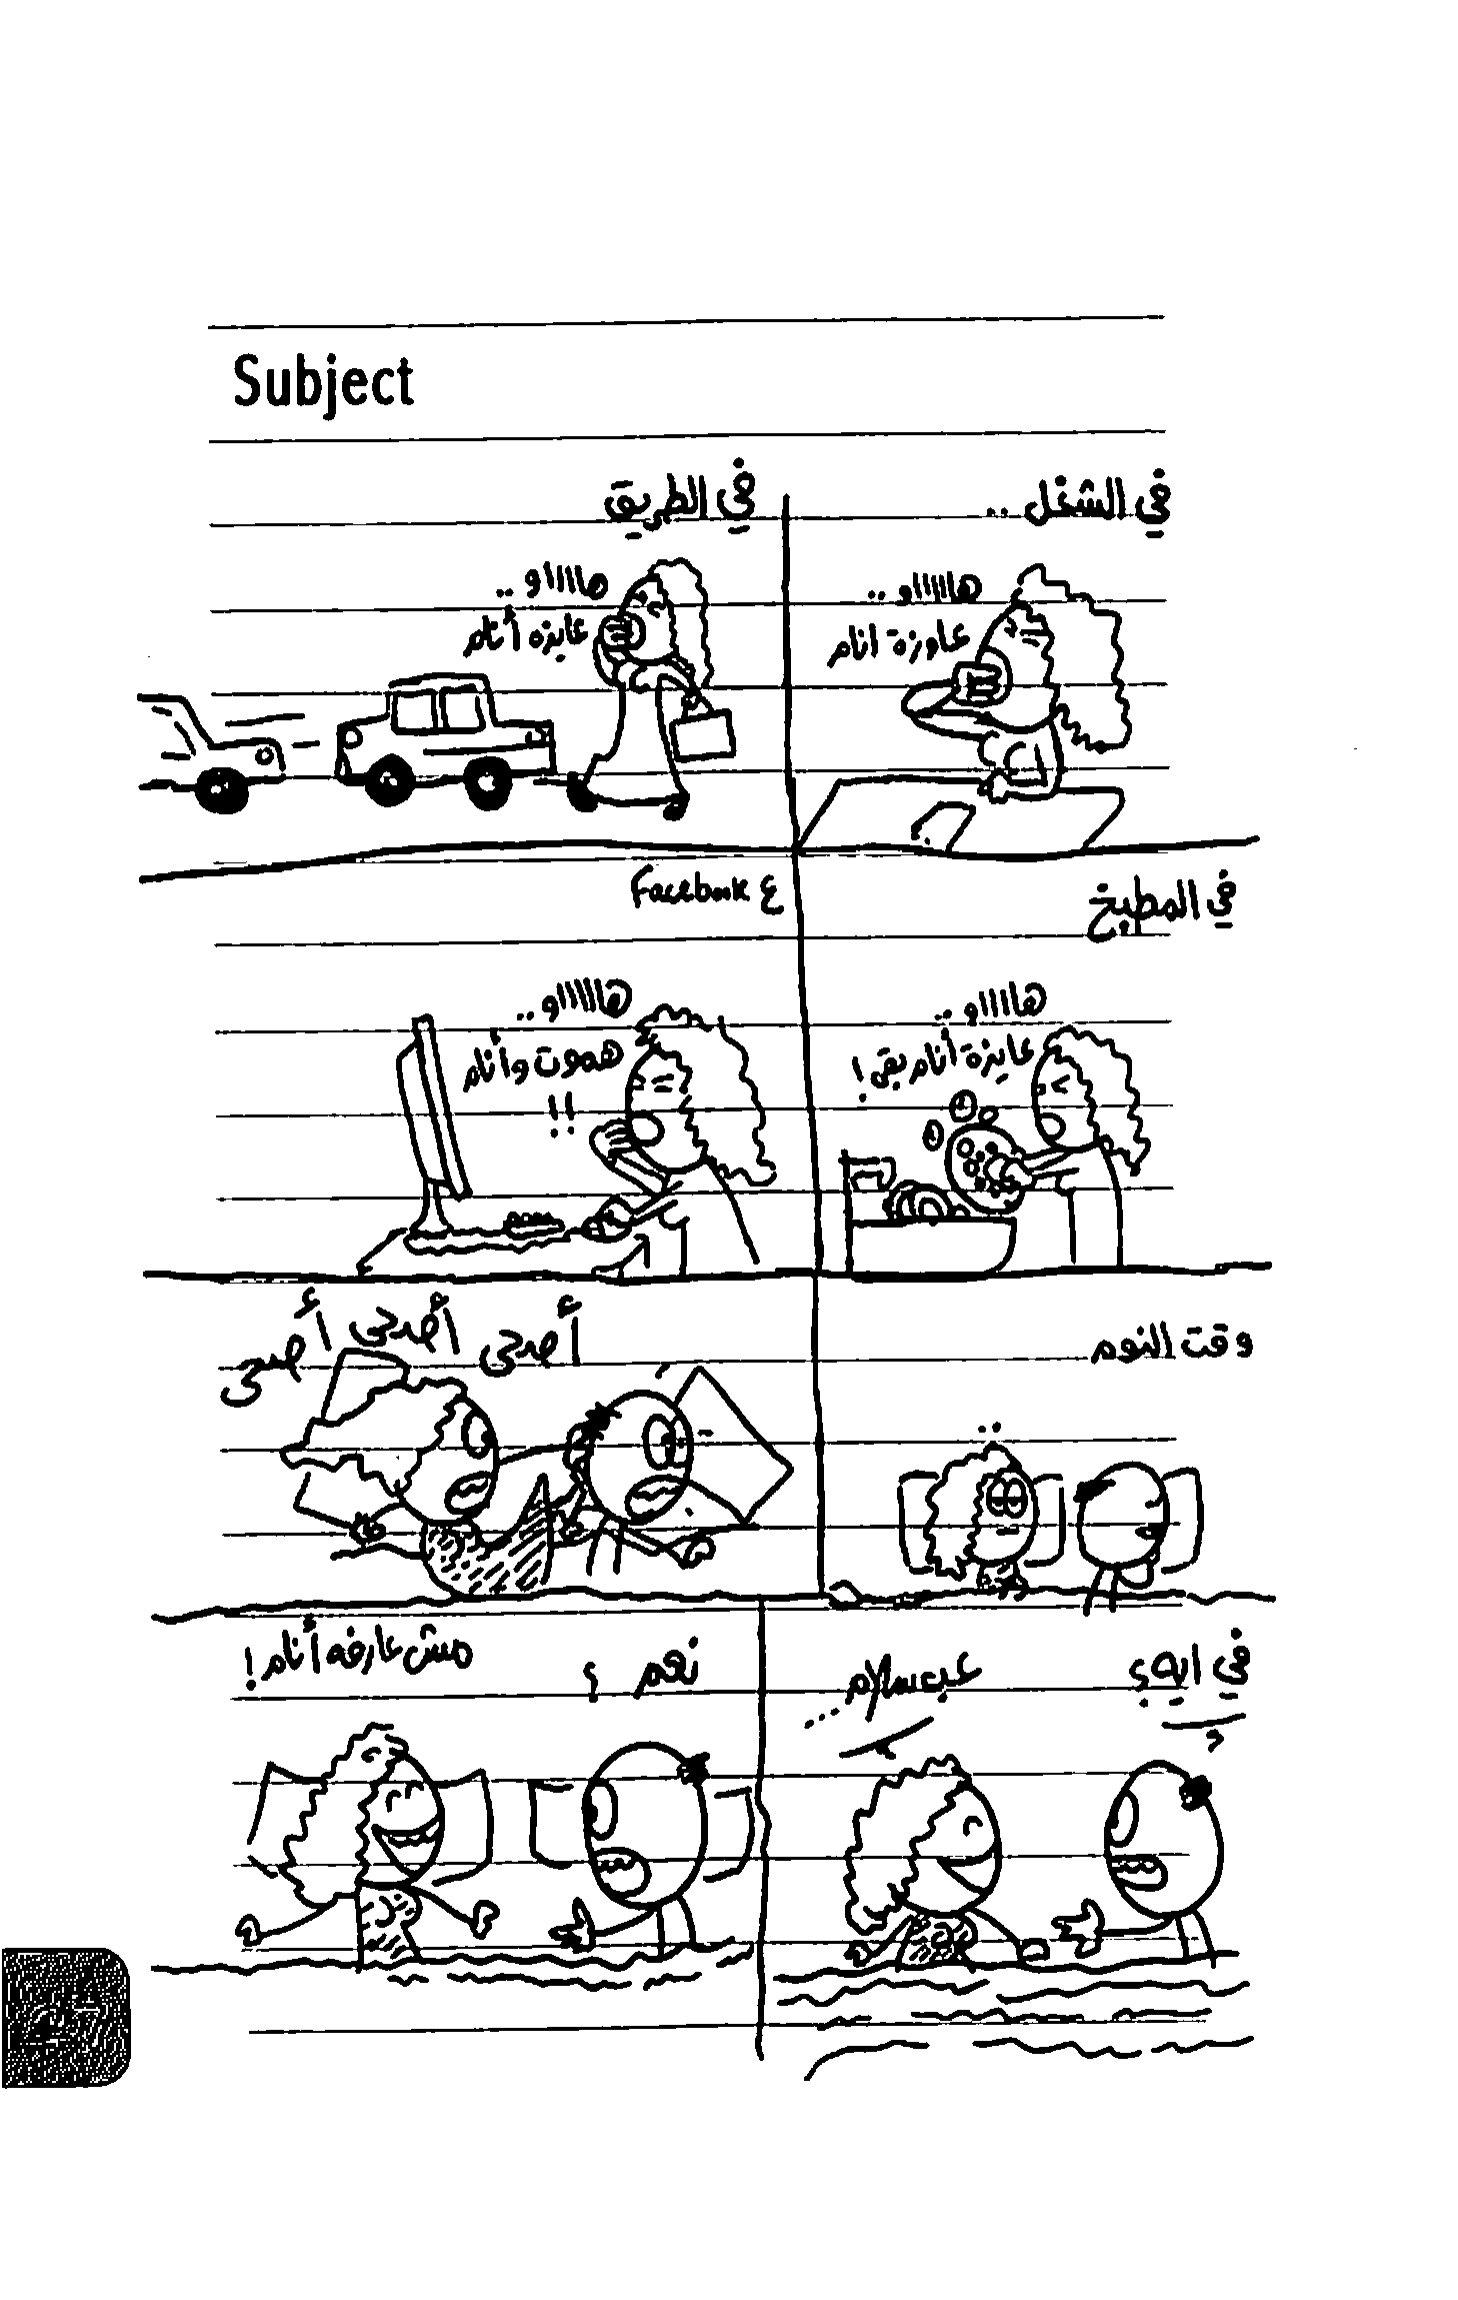 Subject
في الشغل ..
هااااااو ..
عاوزة انام
في الطريق
هاااااو ..
عايزه أنام
في المطبخ
هااااو ..
عايزة أنام بقى !
ع Facebook
هاااااااو ..
هموت وأنام
!!
وقت النوم
..
أصحى أصحى أصحى
في ايه ؟
عبسلام ...
نعم ؟
مش عارفه أنام !